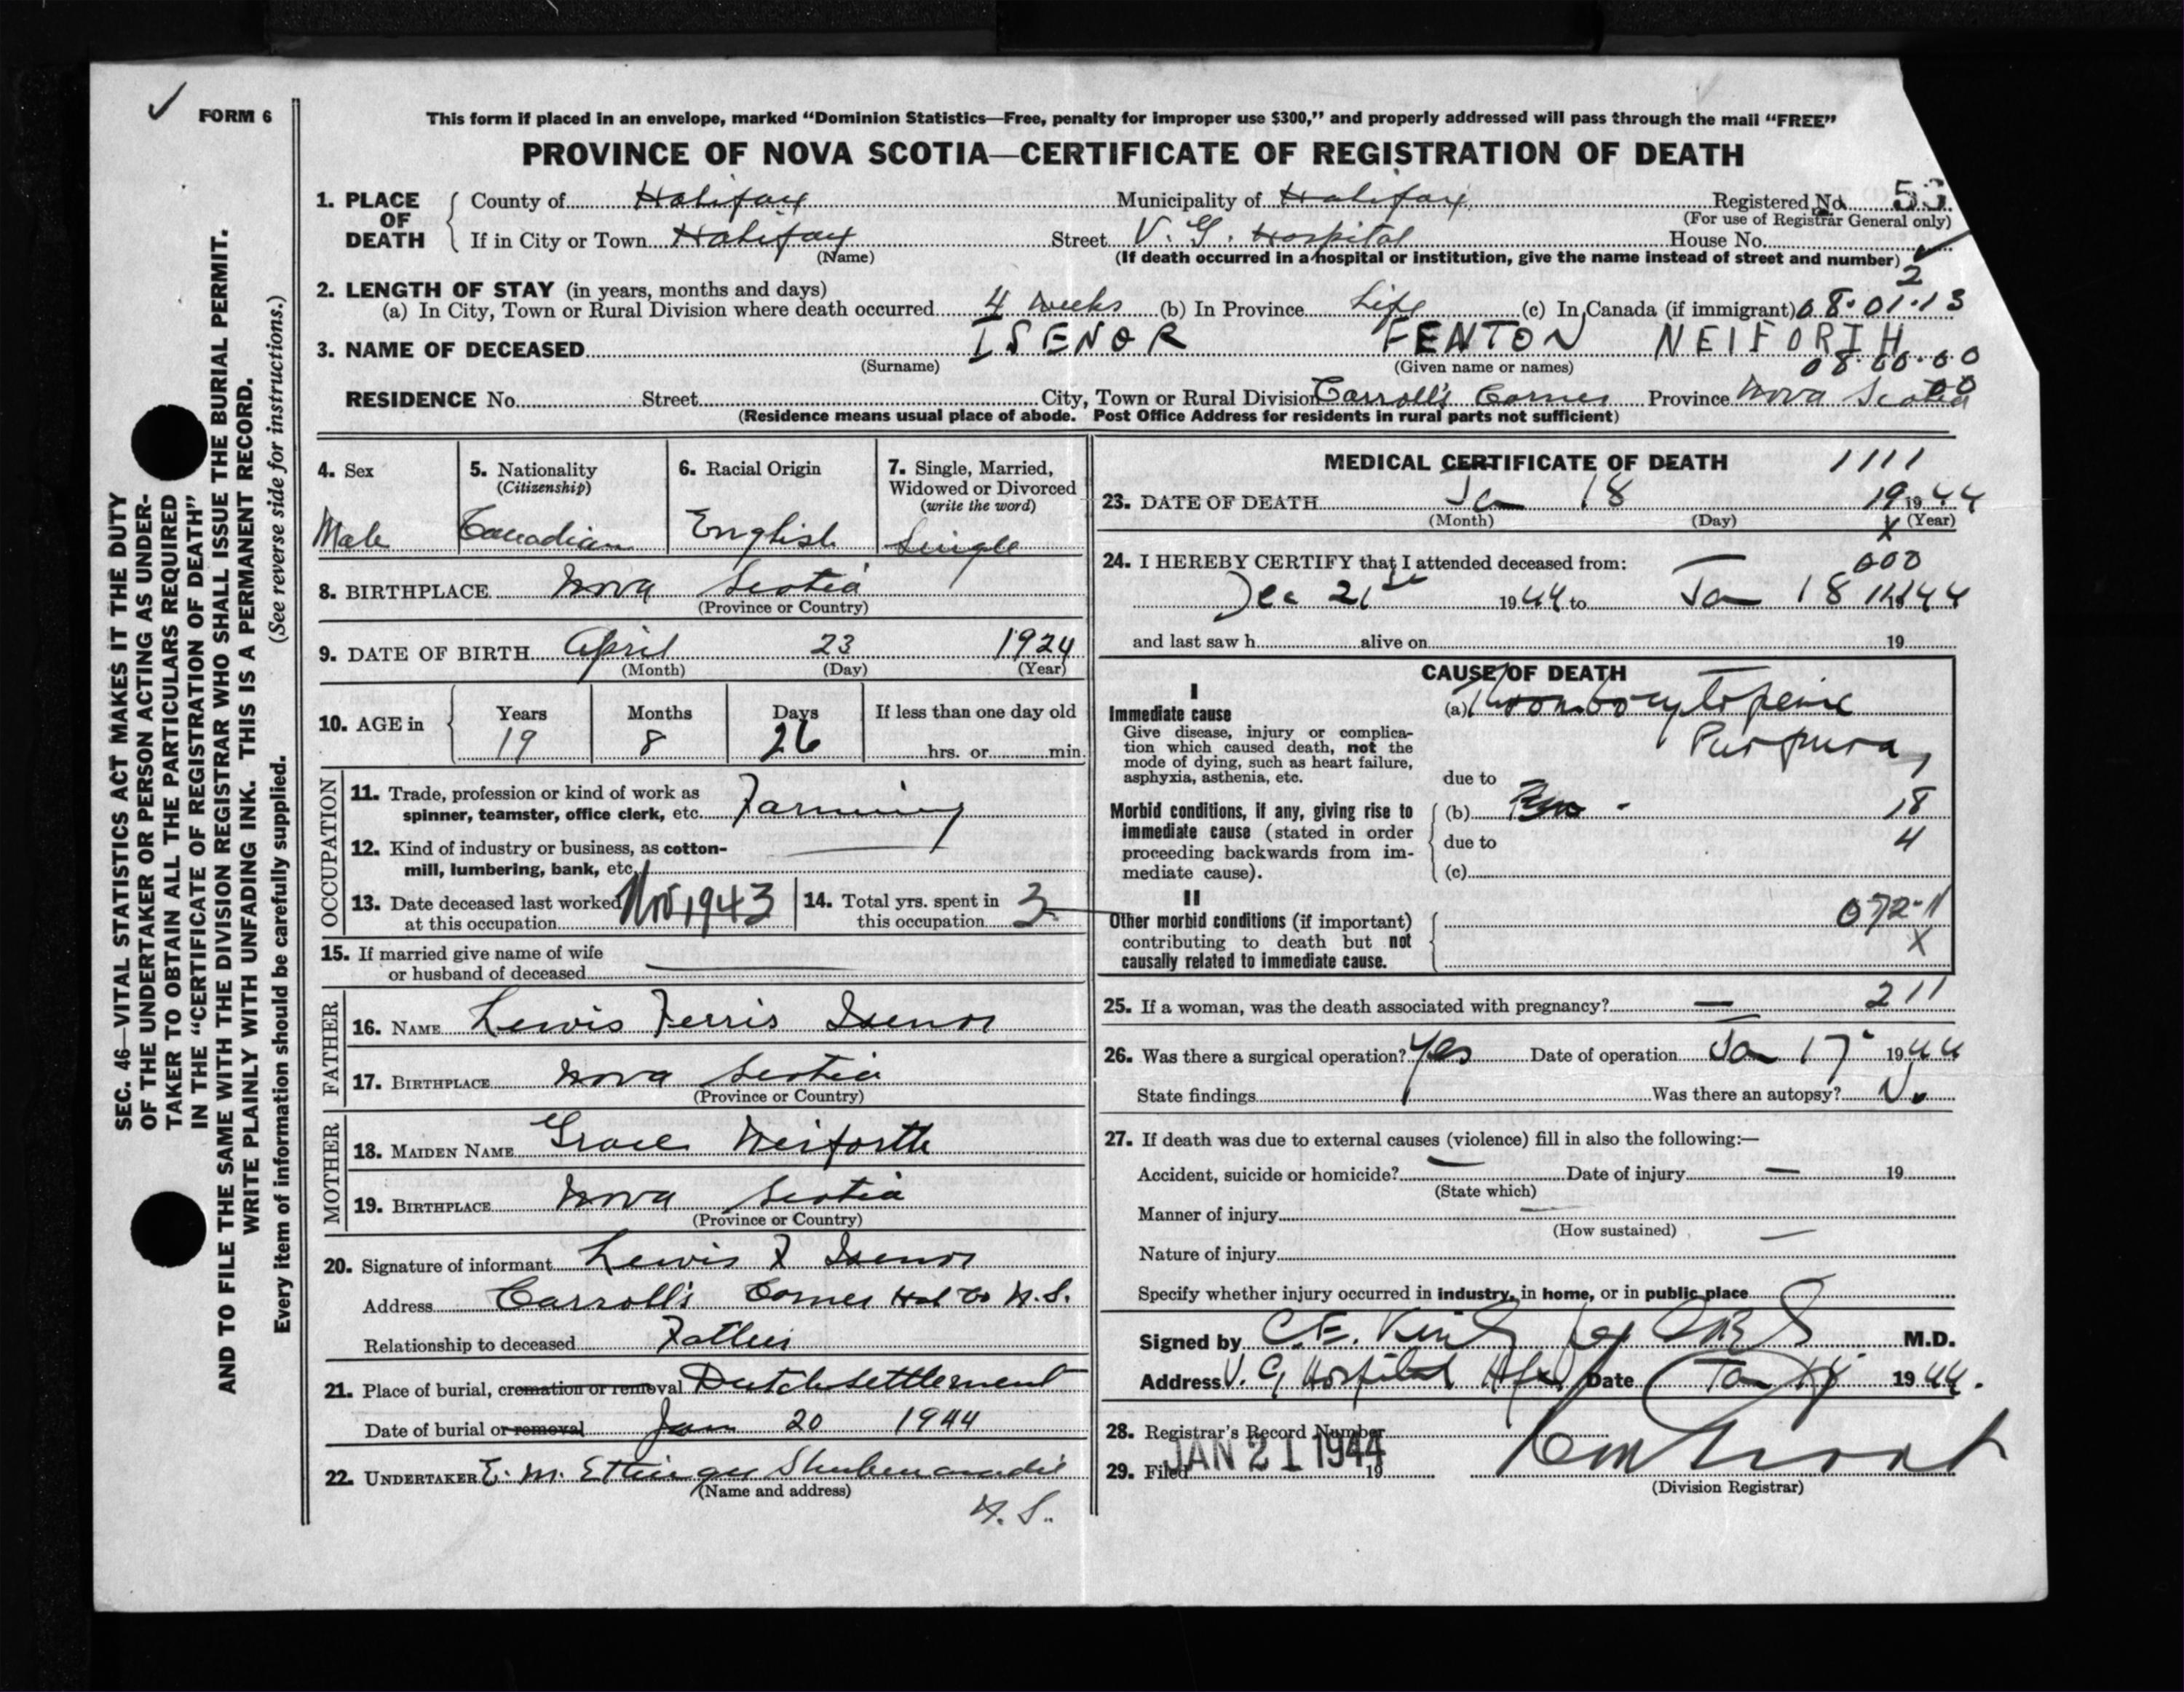 ✓ FORM 6
This form if placed in an envelope, marked “Dominion Statistics—Free, penalty for improper use $300,” and properly addressed will pass through the mail “FREE”
PROVINCE OF NOVA SCOTIA—CERTIFICATE OF REGISTRATION OF DEATH
SEC. 46—VITAL STATISTICS ACT MAKES IT THE DUTY
OF THE UNDERTAKER OR PERSON ACTING AS UNDER-
TAKER TO OBTAIN ALL THE PARTICULARS REQUIRED
IN THE “CERTIFICATE OF REGISTRATION OF DEATH”
AND TO FILE THE SAME WITH THE DIVISION REGISTRAR WHO SHALL ISSUE THE BURIAL PERMIT.
WRITE PLAINLY WITH UNFADING INK. THIS IS A PERMANENT RECORD.
Every item of information should be carefully supplied. (See reverse side for instructions.)
1. PLACE OF DEATH County of Halifax Municipality of Halifax Registered No. 53
(For use of Registrar General only)
If in City or Town Halifax Street V. G. Hospital House No.
(Name) (If death occurred in a hospital or institution, give the name instead of street and number)
2
2. LENGTH OF STAY (in years, months and days)
(a) In City, Town or Rural Division where death occurred 4 weeks (b) In Province Life (c) In Canada (if immigrant) 08·01·13
3. NAME OF DECEASED ISENOR FENTON NEIFORTH
(Surname) (Given name or names) 08·00·00
00
RESIDENCE No. Street City, Town or Rural Division Carroll's Corner Province Nova Scotia
(Residence means usual place of abode. Post Office Address for residents in rural parts not sufficient)
4. Sex 5. Nationality 6. Racial Origin 7. Single, Married,
(Citizenship) Widowed or Divorced
(write the word)
Male Canadian English Single
8. BIRTHPLACE Nova Scotia
(Province or Country)
9. DATE OF BIRTH April 23 1924
(Month) (Day) (Year)
10. AGE in Years Months Days If less than one day old
19 8 26 hrs. or min.
OCCUPATION
11. Trade, profession or kind of work as
spinner, teamster, office clerk, etc. Farming
12. Kind of industry or business, as cotton-
mill, lumbering, bank, etc.
13. Date deceased last worked Nov 1943 14. Total yrs. spent in
at this occupation this occupation 3
15. If married give name of wife
or husband of deceased
FATHER
16. NAME Lewis Ferris Isenor
17. BIRTHPLACE Nova Scotia
(Province or Country)
MOTHER
18. MAIDEN NAME Grace Neiforth
19. BIRTHPLACE Nova Scotia
(Province or Country)
20. Signature of informant Lewis F Isenor
Address Carroll's Corner Hal Co N.S.
Relationship to deceased Father
21. Place of burial, cremation or removal Dutch Settlement
Date of burial or removal Jan 20 1944
22. UNDERTAKER E. M. Ettinger Shubenacadie
(Name and address)
N. S.
MEDICAL CERTIFICATE OF DEATH 1111
23. DATE OF DEATH Ja 18 19 1944
(Month) (Day) (Year)
X
24. I HEREBY CERTIFY that I attended deceased from:
000
Dec 21st 1944 to Ja 18 1944
and last saw h alive on 19
CAUSE OF DEATH
I
Immediate cause (a) Thrombocytopenic
Give disease, injury or complica- Purpura
tion which caused death, not the
mode of dying, such as heart failure,
asphyxia, asthenia, etc. due to
Morbid conditions, if any, giving rise to (b) 18
immediate cause (stated in order due to 4
proceeding backwards from im-
mediate cause). (c)
II
Other morbid conditions (if important) 072-11
contributing to death but not X
causally related to immediate cause.
25. If a woman, was the death associated with pregnancy? — 211
26. Was there a surgical operation? Yes Date of operation Ja 17 1944
State findings Was there an autopsy? No
27. If death was due to external causes (violence) fill in also the following:—
Accident, suicide or homicide? — Date of injury — 19
(State which)
Manner of injury
(How sustained)
Nature of injury
Specify whether injury occurred in industry, in home, or in public place
Signed by C.E. M.D.
Address V. G. Hospital Hfx Date Ja 1944.
28. Registrar's Record Number
29. Filed JAN 21 1944 19
(Division Registrar)